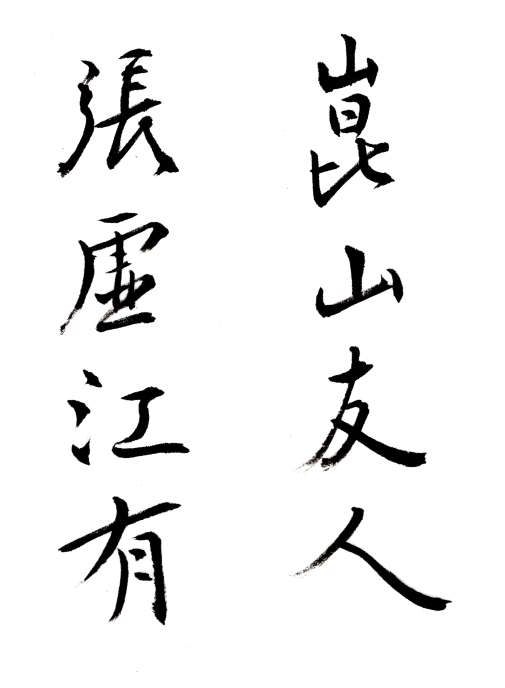 崑山友人
張虛江有